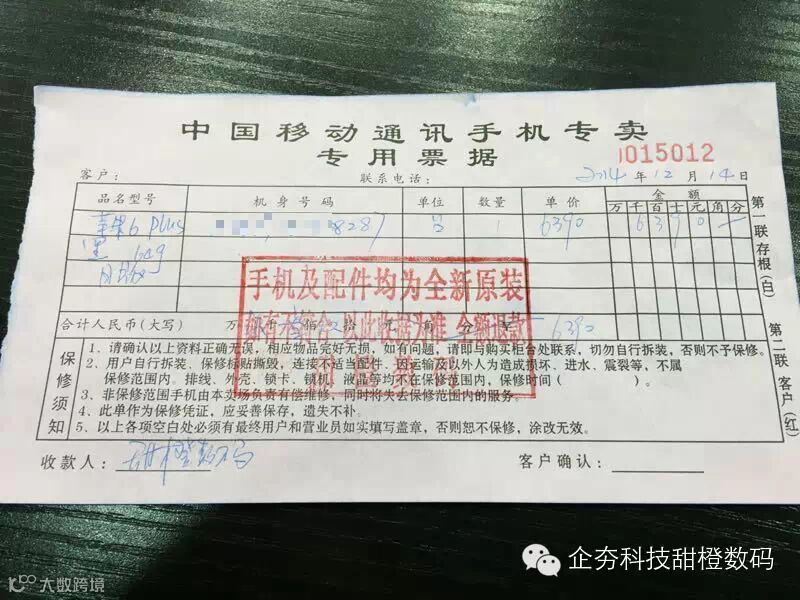 中国移动通讯手机专卖
专用票据
0015012
客户： 联系电话： 2014 年 12 月 14 日
品名型号 机身号码 单位 数量 单价 金额
万 千 百 十 元 角 分
苹果6 Plus 8287 台 1 6390 6 3 9 0
黑 64g
合计人民币(大写) 万 仟 佰 拾 元 角 分 6390
手机及配件均为全新原装
如有不符合 以此收据为准 全额退款
保修须知
1、请确认以上资料正确无误，相应物品完好无损，如有问题，请即与购买柜台处联系，切勿自行拆装，否则不予保修。
2、用户自行拆装、保修标贴撕毁，连接不适当配件、因运输及以外人为造成损坏、进水、震裂等，不属
保修范围内。排线、外壳、锁卡、锁机、液晶等均不在保修范围内，保修时间（ ）。
3、非保修范围手机由本卖场负责有偿维修，同时将失去保修范围内的服务。
4、此单作为保修凭证，应妥善保存，遗失不补。
5、以上各项空白处必须有最终用户和营业员如实填写盖章，否则恕不保修，涂改无效。
第一联存根(白)
第二联客户(红)
收款人： 甜橙数码
客户确认：
企夯科技甜橙数码
大数跨境